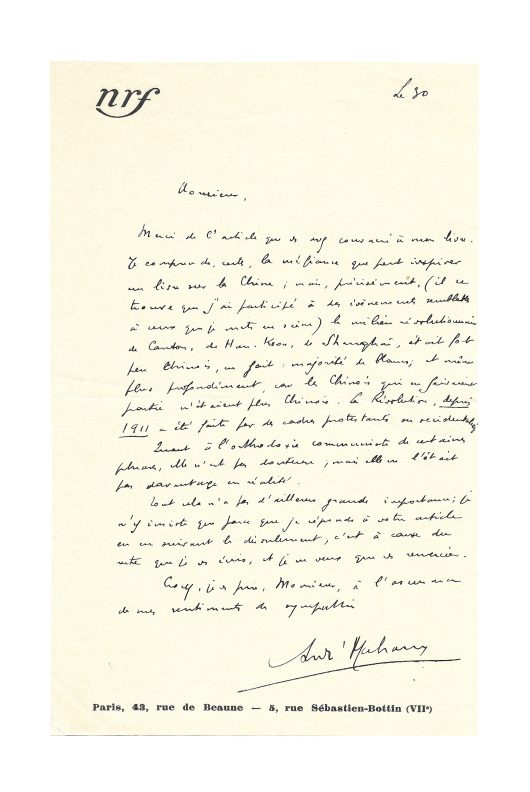 nrf
Le 30
Monsieur,
Merci de l'article que vs avez consacré à mon livre.
Je comprends, certes, la méfiance que peut inspirer
un livre sur la Chine ; mais, précisément, (il se
trouve que j'ai participé à des événements semblables
à ceux que je mets en scène) le milieu révolutionnaire
de Canton, de Han-Keou, de Shanghaï, était fort
peu Chinois, en fait : majorité de blancs ; et même
plus profondément, car les Chinois qui en faisaient
partie n'étaient plus Chinois. La Révolution, depuis
1911 a été faite par des cadres protestants ou occidentalisés
Quant à l'orthodoxie communiste de certaines
phrases, elle n'est pas douteuse ; mais elle ne l'était
pas davantage en réalité.
Tout cela n'a pas d'ailleurs grande importance ; je
n'y insiste que parce que je réponds à votre article
en en suivant le déroulement ; c'est à cause du
reste que je vs écris, et je ne veux que vs remercier.
Croyez, je vs prie, Monsieur, à l'assurance
de mes sentiments de sympathie
André Malraux
Paris, 43, rue de Beaune — 5, rue Sébastien-Bottin (VIIe)